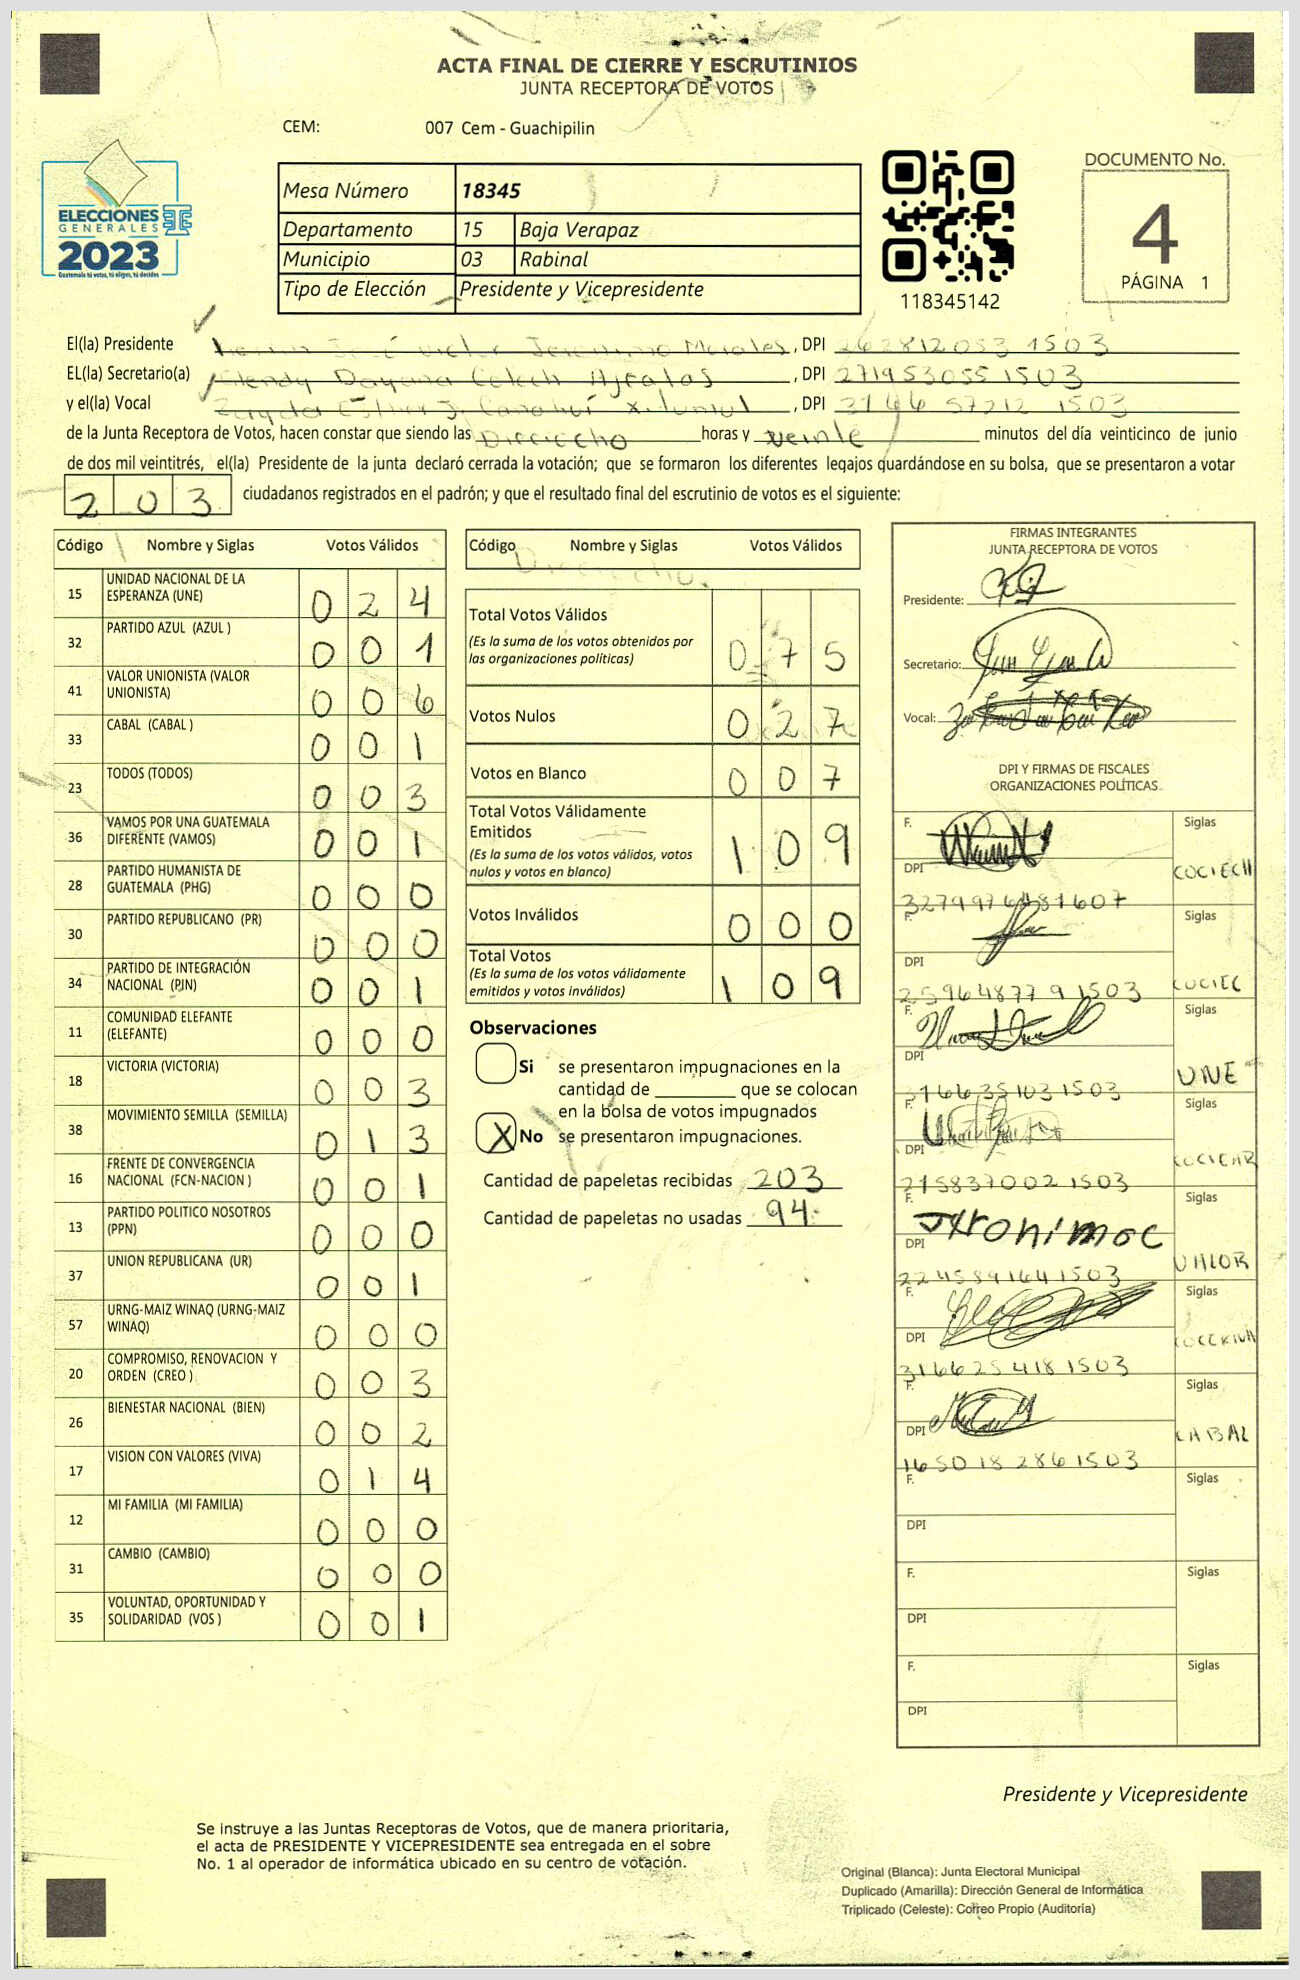 ACTA FINAL DE CIERRE Y ESCRUTINIOS
JUNTA RECEPTORA DE VOTOS
CEM: 007 Cem - Guachipilin
ELECCIONES
GENERALES
2023
Guatemala tú votas, tú eliges, tú decides
Mesa Número 18345
Departamento 15 Baja Verapaz
Municipio 03 Rabinal
Tipo de Elección Presidente y Vicepresidente
118345142
DOCUMENTO No.
4
PÁGINA 1
El(la) Presidente José Victor Jeronimo Morales, DPI 1503
EL(la) Secretario(a) Dayana, DPI 271953055 1503
y el(la) Vocal Esther, DPI 3166 57212 1503
de la Junta Receptora de Votos, hacen constar que siendo las Dieciocho horas y veinte minutos del día veinticinco de junio
de dos mil veintitrés, el(la) Presidente de la junta declaró cerrada la votación; que se formaron los diferentes legajos guardándose en su bolsa, que se presentaron a votar
203 ciudadanos registrados en el padrón; y que el resultado final del escrutinio de votos es el siguiente:
Código Nombre y Siglas Votos Válidos
15 UNIDAD NACIONAL DE LA ESPERANZA (UNE) 0 2 4
32 PARTIDO AZUL (AZUL ) 0 0 1
41 VALOR UNIONISTA (VALOR UNIONISTA) 0 0 6
33 CABAL (CABAL ) 0 0 1
23 TODOS (TODOS) 0 0 3
36 VAMOS POR UNA GUATEMALA DIFERENTE (VAMOS) 0 0 1
28 PARTIDO HUMANISTA DE GUATEMALA (PHG) 0 0 0
30 PARTIDO REPUBLICANO (PR) 0 0 0
34 PARTIDO DE INTEGRACIÓN NACIONAL (PIN) 0 0 1
11 COMUNIDAD ELEFANTE (ELEFANTE) 0 0 0
18 VICTORIA (VICTORIA) 0 0 3
38 MOVIMIENTO SEMILLA (SEMILLA) 0 1 3
16 FRENTE DE CONVERGENCIA NACIONAL (FCN-NACION ) 0 0 1
13 PARTIDO POLITICO NOSOTROS (PPN) 0 0 0
37 UNION REPUBLICANA (UR) 0 0 1
57 URNG-MAIZ WINAQ (URNG-MAIZ WINAQ) 0 0 0
20 COMPROMISO, RENOVACION Y ORDEN (CREO ) 0 0 3
26 BIENESTAR NACIONAL (BIEN) 0 0 2
17 VISION CON VALORES (VIVA) 0 1 4
12 MI FAMILIA (MI FAMILIA) 0 0 0
31 CAMBIO (CAMBIO) 0 0 0
35 VOLUNTAD, OPORTUNIDAD Y SOLIDARIDAD (VOS ) 0 0 1
Código Nombre y Siglas Votos Válidos
Dieciocho.
Total Votos Válidos 0 7 5
(Es la suma de los votos obtenidos por
las organizaciones políticas)
Votos Nulos 0 2 7
Votos en Blanco 0 0 7
Total Votos Válidamente
Emitidos 1 0 9
(Es la suma de los votos válidos, votos
nulos y votos en blanco)
Votos Inválidos 0 0 0
Total Votos 1 0 9
(Es la suma de los votos válidamente
emitidos y votos inválidos)
Observaciones
Si se presentaron impugnaciones en la
cantidad de ________ que se colocan
en la bolsa de votos impugnados
X No se presentaron impugnaciones.
Cantidad de papeletas recibidas 203
Cantidad de papeletas no usadas 94
FIRMAS INTEGRANTES
JUNTA RECEPTORA DE VOTOS
Presidente:
Secretario:
Vocal:
DPI Y FIRMAS DE FISCALES
ORGANIZACIONES POLÍTICAS
F. Siglas
DPI
F. Siglas
DPI
2596487791503
F. Siglas
DPI UNE
3166351031503
F. Siglas
DPI
2158370021503
F. Jeronimoc Siglas
DPI VALOR
2245891641503
F. Siglas
DPI
3166254181503
F. Siglas
DPI CABAL
1650182861503
F. Siglas
DPI
F. Siglas
DPI
F. Siglas
DPI
Presidente y Vicepresidente
Se instruye a las Juntas Receptoras de Votos, que de manera prioritaria,
el acta de PRESIDENTE Y VICEPRESIDENTE sea entregada en el sobre
No. 1 al operador de informática ubicado en su centro de votación.
Original (Blanca): Junta Electoral Municipal
Duplicado (Amarilla): Dirección General de Informática
Triplicado (Celeste): Correo Propio (Auditoría)